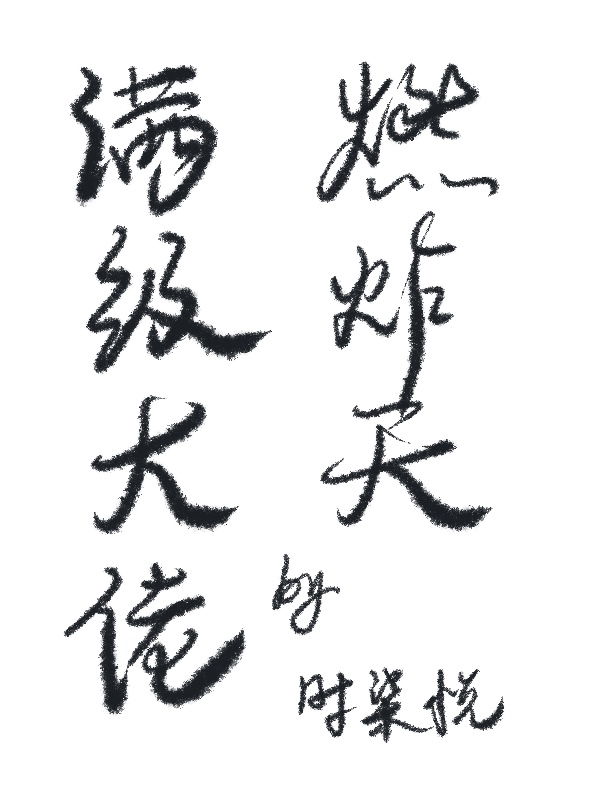 满级大佬
燃炸天
的
时柒悦